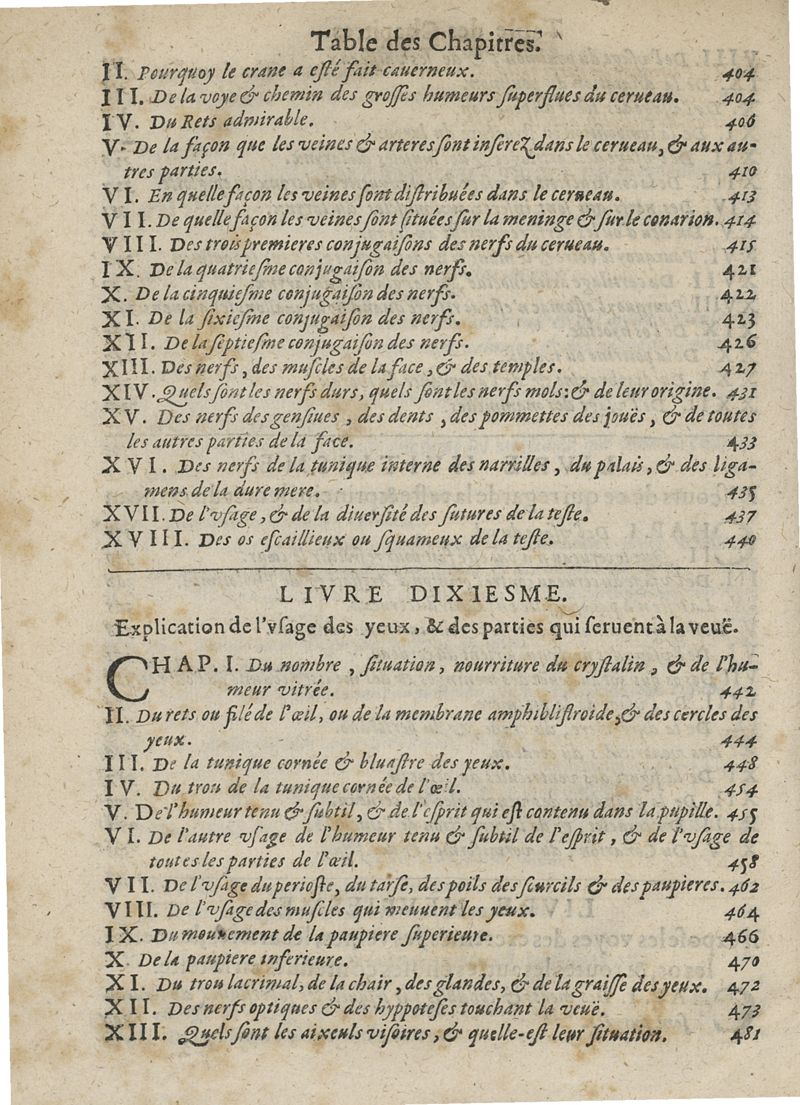 Table des Chapitres.
II. Pourquoy le crane a eſté fait cauerneux. 404
III. De la voye & chemin des groſſes humeurs ſuperflues du cerueau. 404
IV. Du Rets admirable. 406
V. De la façon que les veines & arteres ſont inſerez dans le cerueau, & aux au-
tres parties. 410
VI. En quelle façon les veines ſont diſtribuées dans le cerueau. 413
VII. De quelle façon les veines ſont ſituées ſur la meninge & ſur le conarion. 414
VIII. Des trois premieres conjugaiſons des nerfs du cerueau. 415
IX. De la quatrieſme conjugaiſon des nerfs. 421
X. De la cinquieſme conjugaiſon des nerfs. 422
XI. De la ſixieſme conjugaiſon des nerfs. 423
XII. De la ſeptieſme conjugaiſon des nerfs. 426
XIII. Des nerfs, des muſcles de la face, & des temples. 427
XIV. Quels ſont les nerfs durs, quels ſont les nerfs mols: & de leur origine. 431
XV. Des nerfs des genſiues, des dents, des pommettes des jouës, & de toutes
les autres parties de la face. 433
XVI. Des nerfs de la tunique interne des narrilles, du palais, & des liga-
mens de la dure mere. 435
XVII. De l'vſage, & de la diuerſité des ſutures de la teſte. 437
XVIII. Des os eſcaillieux ou ſquameux de la teſte. 440
LIVRE DIXIESME.
Explication de l'vſage des yeux, & des parties qui ſeruent à la veuë.
CHAP. I. Du nombre, ſituation, nourriture du cryſtalin, & de l'hu-
meur vitrée. 442
II. Du rets ou filé de l'œil, ou de la membrane amphibliſtroide, & des cercles des
yeux. 444
III. De la tunique cornée & bluaſtre des yeux. 448
IV. Du trou de la tunique cornée de l'œil. 454
V. De l'humeur tenu & ſubtil, & de l'eſprit qui eſt contenu dans la pupille. 455
VI. De l'autre vſage de l'humeur tenu & ſubtil de l'eſprit, & de l'vſage de
toutes les parties de l'œil. 458
VII. De l'vſage du perioſte, du tarſe, des poils des ſourcils & des paupieres. 462
VIII. De l'vſage des muſcles qui meuuent les yeux. 464
IX. Du mouuement de la paupiere ſuperieure. 466
X. De la paupiere inferieure. 470
XI. Du trou lacrimal, de la chair, des glandes, & de la graiſſe des yeux. 472
XII. Des nerfs optiques & des hyppoteſes touchant la veuë. 473
XIII. Quels ſont les aixeuls viſoires, & quelle-eſt leur ſituation. 481